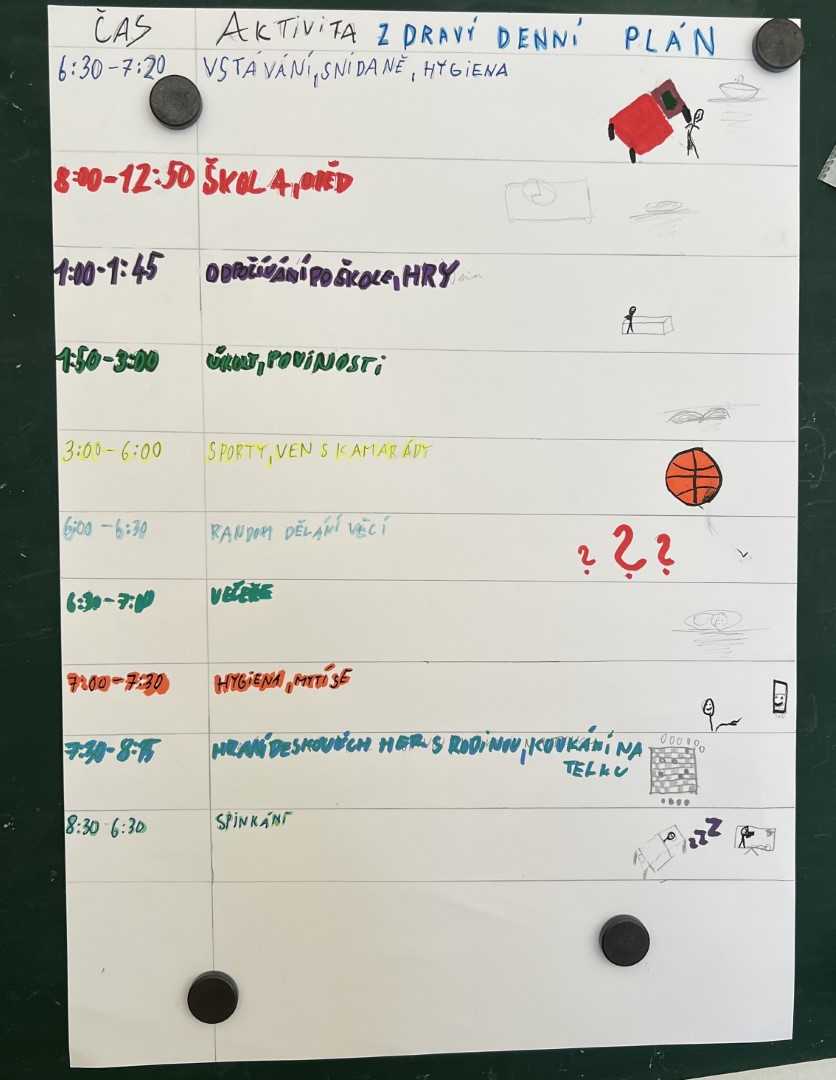 ČAS AKTIVITA ZDRAVÍ DENNÍ PLÁN
6:30-7:20 VSTÁVÁNÍ,SNÍDANĚ, HYGIENA
8:00-12:50 ŠKOLA,OBĚD
1:00-1:45 ODPOČÍVÁNÍ PO ŠKOLE,HRY
1:50-3:00 ÚKOLY,POVINOSTI
3:00-6:00 SPORTY,VEN S KAMARÁDY
6:00-6:30 RANDOM DĚLÁNÍ VĚCÍ
? ? ?
6:30-7:00 VEČEŘE
7:00-7:30 HYGIENA,MYTÍ SE
7:30-8:15 HRANÍ DESKOVÝCH HER S RODINOU,KOUKÁNÍ NA
TELKU
8:30-6:30 SPINKÁNÍ
zzZ